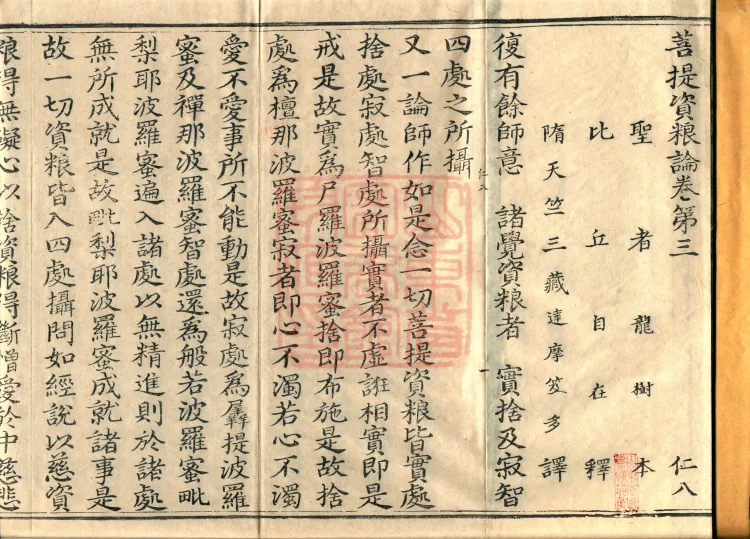 菩提資粮論卷第三 仁八
聖者龍樹本
比丘自在釋
隋天竺三藏達摩笈多譯
復有餘師意 諸覺資粮者 實捨及寂智
四處之所攝
仁八 一
又一論師作如是念一切菩提資粮皆實處
捨處寂處智處所攝實者不虛誑相實即是
戒是故實為尸羅波羅蜜捨即布施是故捨
處為檀那波羅蜜寂者即心不濁若心不濁
愛不愛事所不能動是故寂處為羼提波羅
蜜及禪那波羅蜜智處還為般若波羅蜜毗
梨耶波羅蜜遍入諸處以無精進則於諸處
無所成就是故毗梨耶波羅蜜成就諸事是
故一切資粮皆入四處攝問如經說以慈資
粮得無礙心以捨資粮得斷憎愛於中慈悲